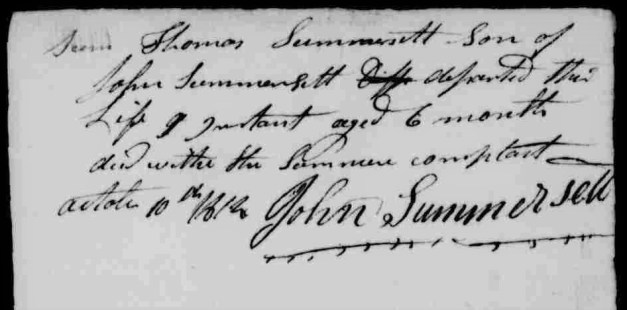 Thomas Summersett Son of
John Summersett departed this
Life 9 Instant aged 6 month
died withe the Summer complant
octobr 10th 1812 John Summersett